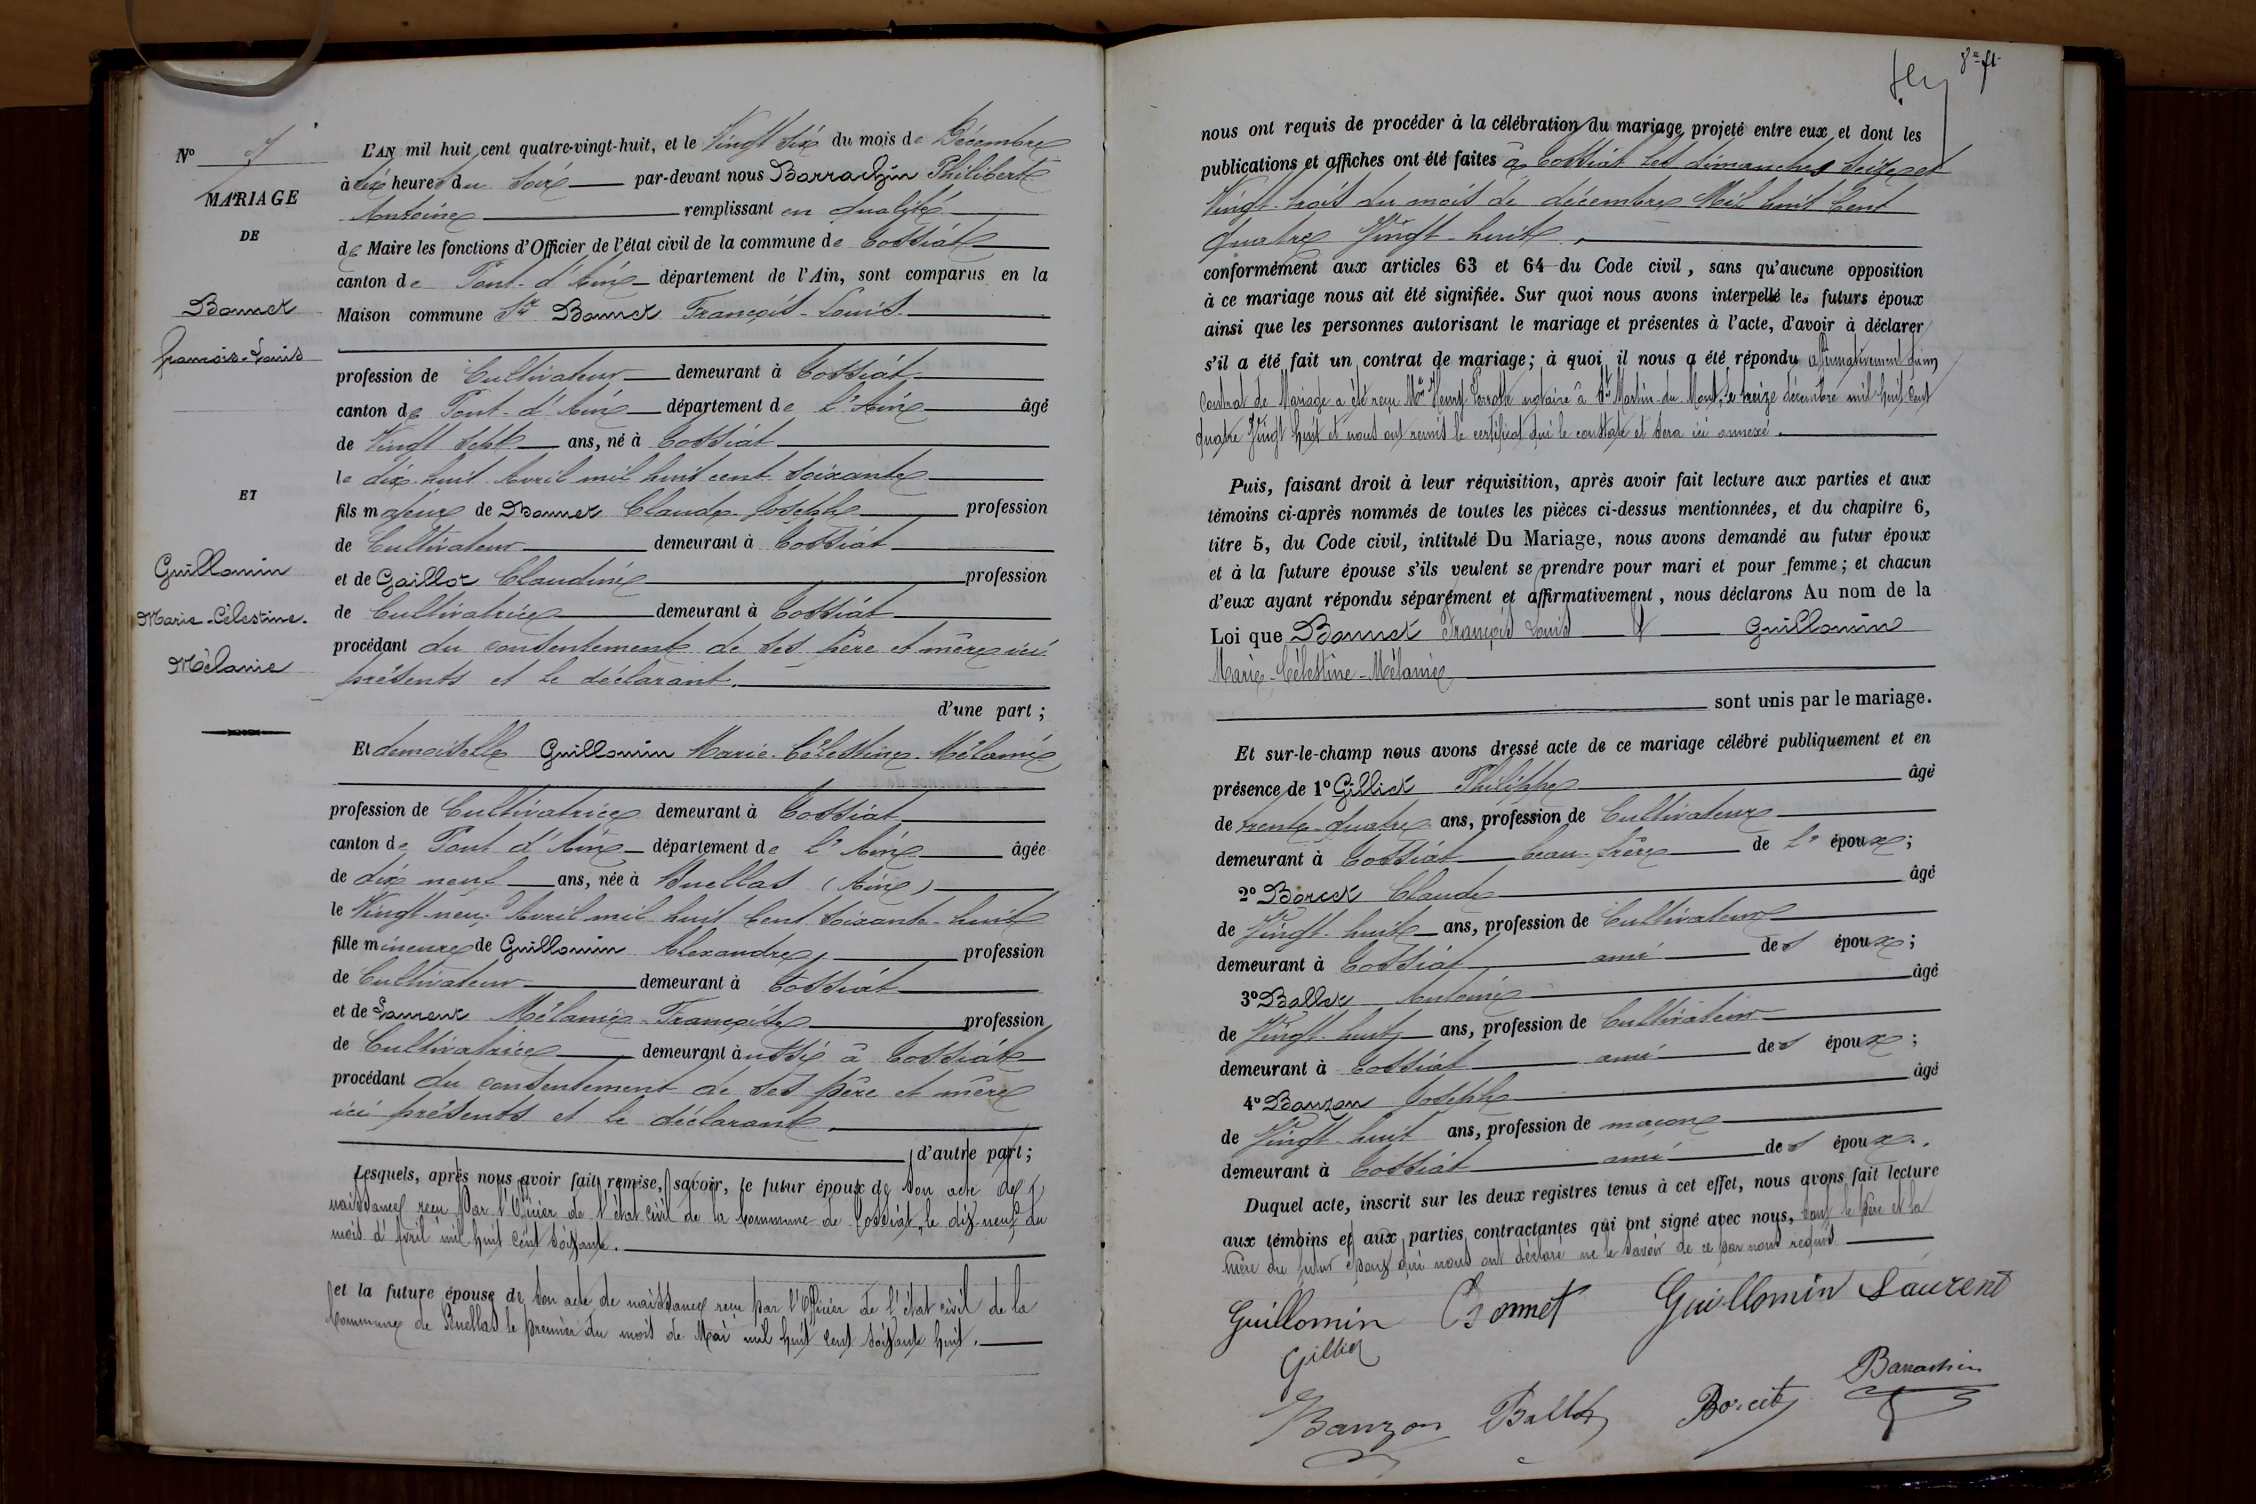 N° 7
MARIAGE
DE
Bonnet
François-Louis
ET
Guillomin
Marie-Célestine-
Mélanie
L'AN mil huit cent quatre-vingt-huit, et le Vingt Six du mois de Décembre
à Six heures du Soir par-devant nous Barrachin Philibert
Antoine remplissant en qualité
de Maire les fonctions d'Officier de l'état civil de la commune de Tossiat
canton de Pont-d'Ain département de l'Ain, sont comparus en la
Maison commune Sr Bonnet François-Louis
profession de Cultivateur demeurant à Tossiat
canton de Pont-d'Ain département de l'Ain âgé
de Vingt Sept ans, né à Tossiat
le dix-huit Avril mil huit cent soixante
fils majeur de Bonnet Claude Joseph profession
de Cultivateur demeurant à Tossiat
et de Gaillot Claudine profession
de Cultivatrice demeurant à Tossiat
procédant du consentement de ses père et mère ici
présents et le déclarant.
d'une part ;
Et demoiselle Guillomin Marie-Célestine-Mélanie
profession de Cultivatrice demeurant à Tossiat
canton de Pont d'Ain département de l'Ain âgée
de dix neuf ans, née à Buellas (Ain)
le Vingt-neuf Avril mil huit Cent soixante-huit
fille mineure de Guillomin Alexandre, profession
de Cultivateur demeurant à Tossiat
et de Laurent Mélanie-Françoise profession
de Cultivatrice demeurant aussi à Tossiat
procédant du consentement de ses père et mère
ici présents et le déclarant.
d'autre part ;
Lesquels, après nous avoir fait remise, savoir, le futur époux de son acte de
naissance reçu par l'Officier de l'état civil de la Commune de Tossiat, le dix neuf du
mois d'Avril mil huit cent soixante.
et la future épouse de son acte de naissance reçu par l'Officier de l'état civil de la
Commune de Buellas le premier du mois de Mai mil huit cent soixante huit.
8e ft
nous ont requis de procéder à la célébration du mariage projeté entre eux et dont les
publications et affiches ont été faites à Tossiat les dimanches Seize et
Vingt-trois du mois de décembre Mil huit Cent
quatre Vingt-huit,
conformément aux articles 63 et 64 du Code civil, sans qu'aucune opposition
à ce mariage nous ait été signifiée. Sur quoi nous avons interpellé les futurs époux
ainsi que les personnes autorisant le mariage et présentes à l'acte, d'avoir à déclarer
s'il a été fait un contrat de mariage ; à quoi il nous a été répondu affirmativement qu'un
Contrat de Mariage a été reçu Me Henry Perrotte notaire à St Martin-du-Mont, le treize décembre mil huit Cent
quatre Vingt huit et nous ont remis le certificat qui le constate et sera ici annexé.
Puis, faisant droit à leur réquisition, après avoir fait lecture aux parties et aux
témoins ci-après nommés de toutes les pièces ci-dessus mentionnées, et du chapitre 6,
titre 5, du Code civil, intitulé Du Mariage, nous avons demandé au futur époux
et à la future épouse s'ils veulent se prendre pour mari et pour femme ; et chacun
d'eux ayant répondu séparément et affirmativement, nous déclarons Au nom de la
Loi que Bonnet François Louis & Guillomin
Marie-Célestine-Mélanie
sont unis par le mariage.
Et sur-le-champ nous avons dressé acte de ce mariage célébré publiquement et en
présence de 1° Gilliet Philippe âgé
de trente-quatre ans, profession de Cultivateur
demeurant à Tossiat beau-frère de l' époux ;
2° Borcet Claude âgé
de Vingt-huit ans, profession de Cultivateur
demeurant à Tossiat ami des époux ;
3° Ballet Antoine âgé
de Vingt-huit ans, profession de Cultivateur
demeurant à Tossiat ami des époux ;
4° Banzon Joseph âgé
de Vingt-huit ans, profession de maçon
demeurant à Tossiat ami des époux.
Duquel acte, inscrit sur les deux registres tenus à cet effet, nous avons fait lecture
aux témoins et aux parties contractantes qui ont signé avec nous, sauf le père et la
mère du futur époux qui nous ont déclaré ne le savoir de ce par nous requis
Guillomin Bonnet Guillomin Laurent
Gilliet
Banzon Ballet Borcet Barrachin